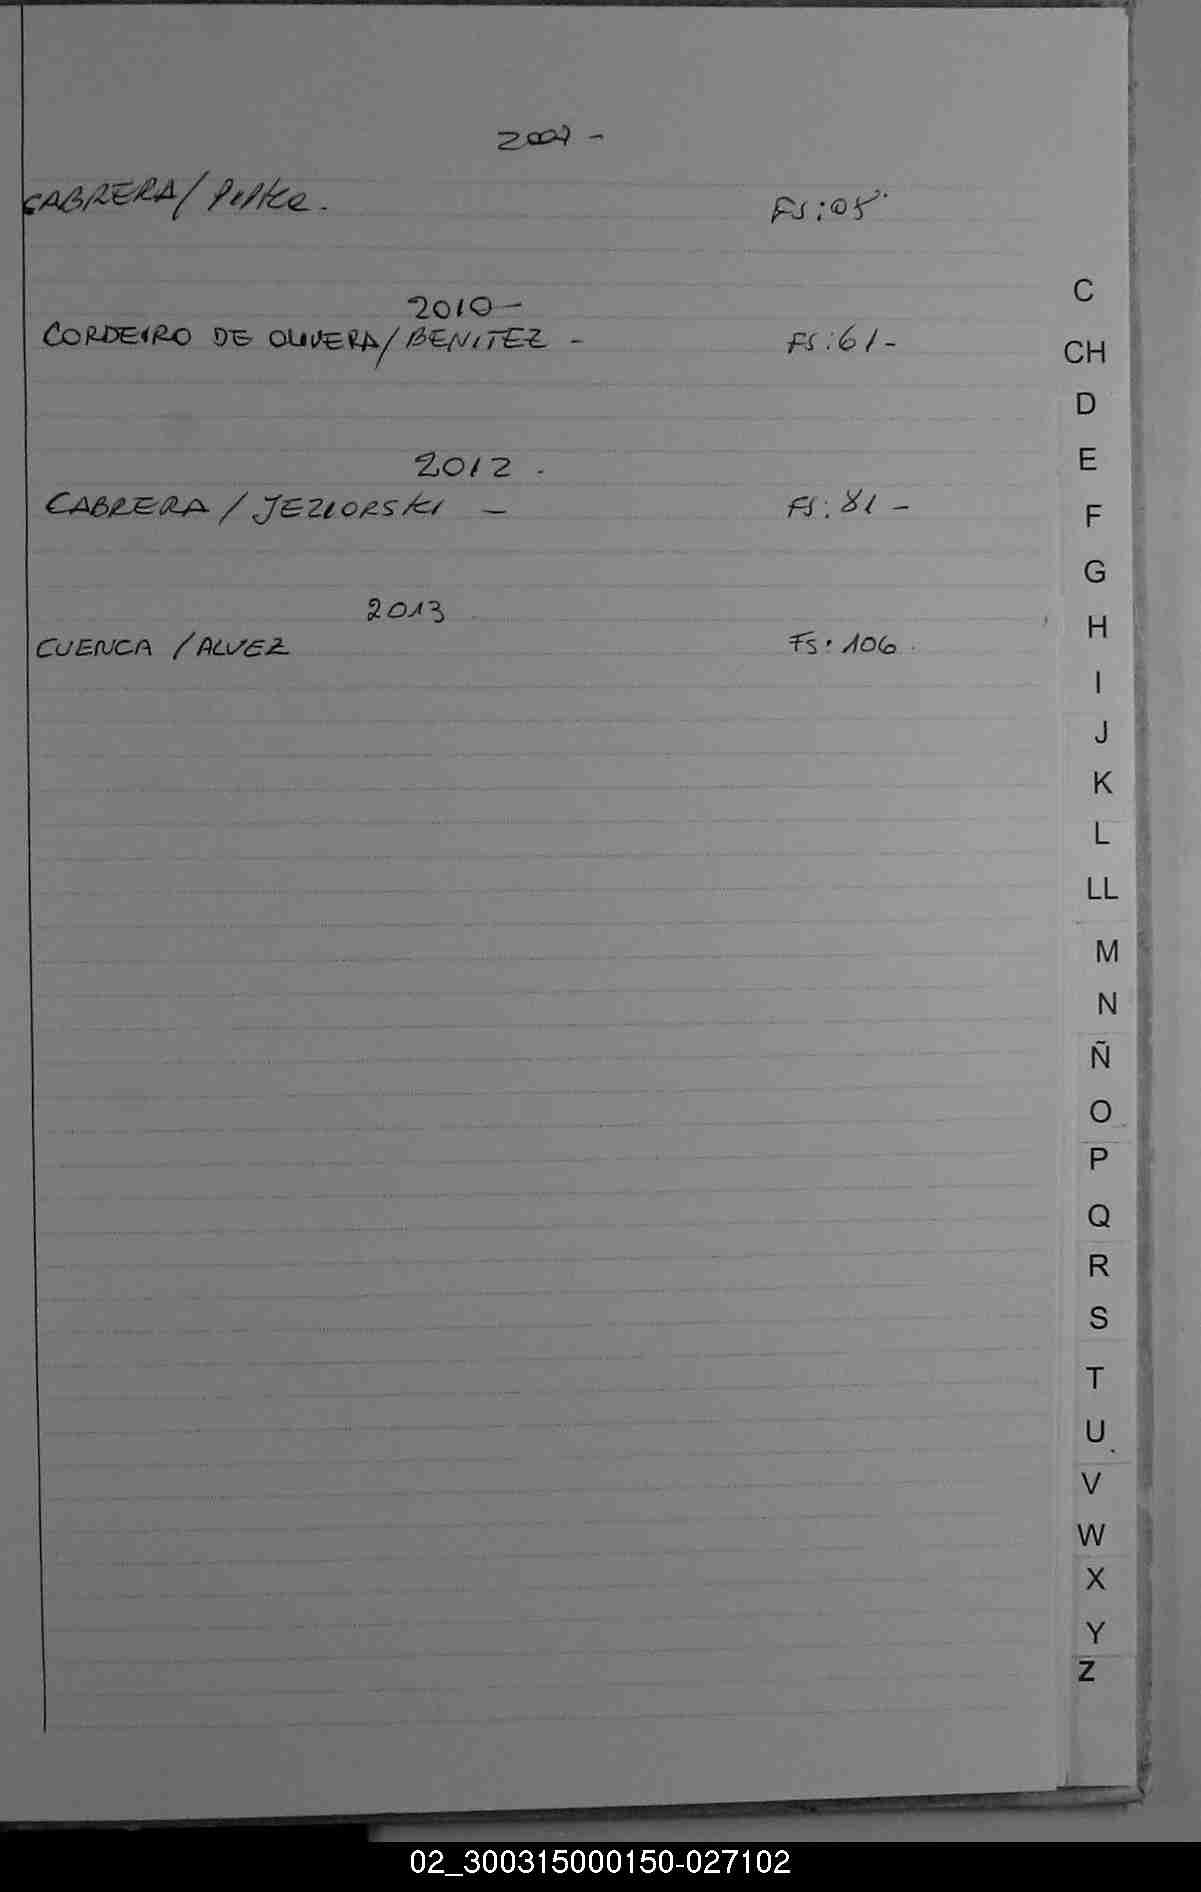 2007 -
CABRERA/ Fs:05
2010-
CORDEIRO DE OLIVERA/BENITEZ - Fs:61-
2012.
CABRERA / JEZIORSKI - Fs:81-
2013
CUENCA /ALVEZ Fs: 106.
C
CH
D
E
F
G
H
I
J
K
L
LL
M
N
Ñ
O
P
Q
R
S
T
U
V
W
X
Y
Z
02_300315000150-027102